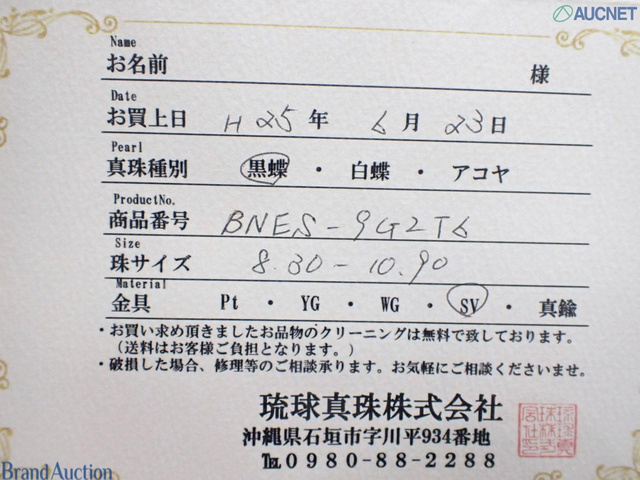 AUCNET
Name
お名前 様
Date
お買上日 H 25 年 6 月 23 日
Pearl
真珠種別 黒蝶 ・ 白蝶 ・ アコヤ
ProductNo.
商品番号 BNES-9G2T6
Size
珠サイズ 8.30-10.90
Material
金具 Pt ・ YG ・ WG ・ SV ・ 真鍮
・お買い求め頂きましたお品物のクリーニングは無料で致しております。
(送料はお客様ご負担となります。)
・破損した場合、修理等のご相談承ります。お気軽にご相談くださいませ。
琉球真珠株式会社
沖縄県石垣市字川平934番地
℡0980-88-2288
Brand Auction